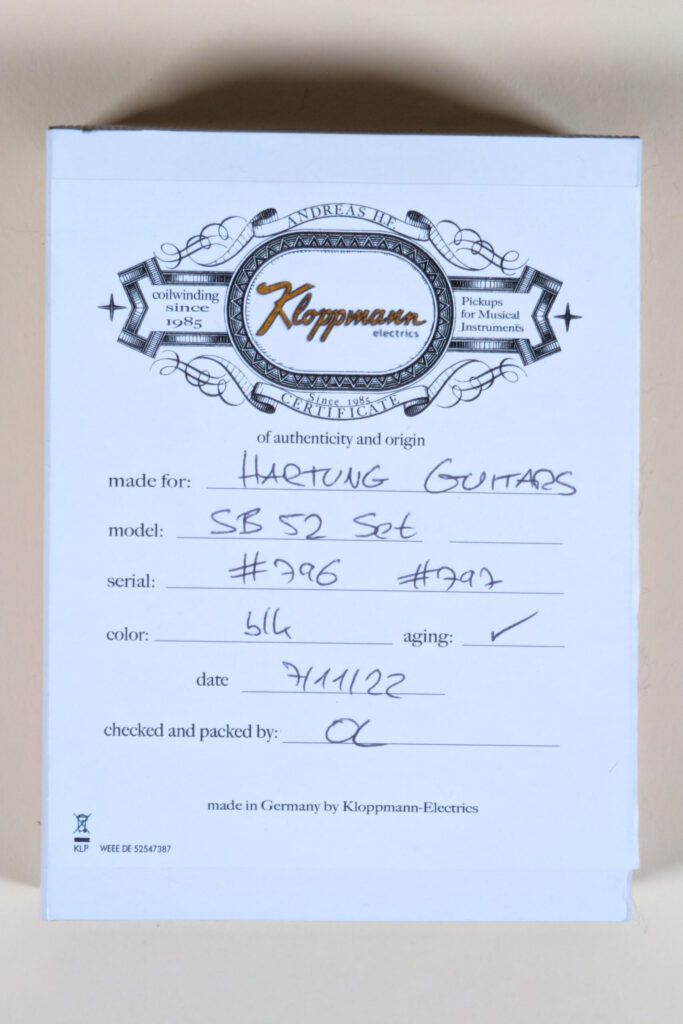 ANDREAS H.F.
coilwinding
since
1985
Kloppmann
electrics
Pickups
for Musical
Instruments
Since 1985
CERTIFICATE
of authenticity and origin
made for: HARTUNG GUITARS
model: SB 52 Set
serial: #796 #797
color: blk aging: ✓
date 7/11/22
checked and packed by:
made in Germany by Kloppmann-Electrics
KLP WEEE DE 52547387